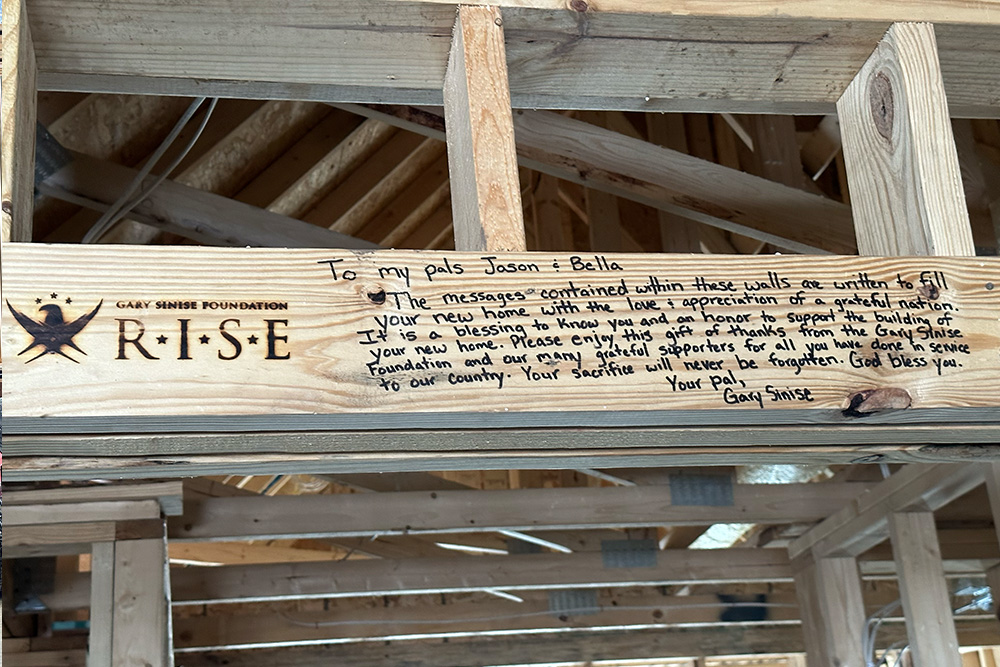 GARY SINISE FOUNDATION
R★I★S★E
To my pals Jason & Bella
The messages contained within these walls are written to fill
your new home with the love & appreciation of a grateful nation.
It is a blessing to know you and an honor to support the building of
your new home. Please enjoy this gift of thanks from the Gary Sinise
Foundation and our many grateful supporters for all you have done in service
to our country. Your sacrifice will never be forgotten. God bless you.
Your pal,
Gary Sinise